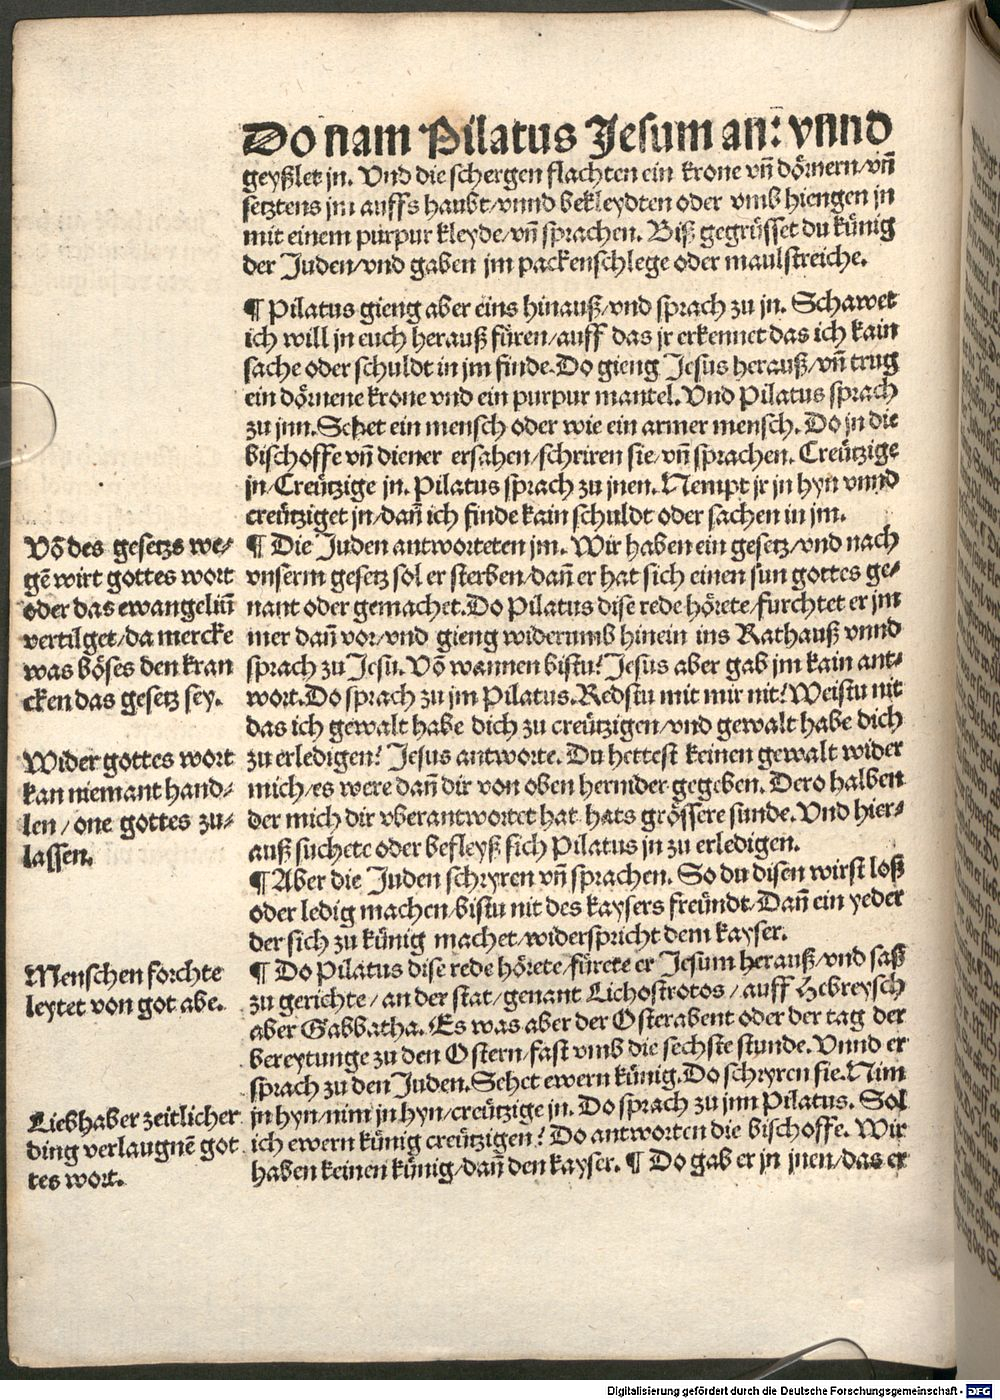 Do nam Pilatus Jesum an: vnnd
geyßlet jn. Vnd die schergen flachten ein krone vñ dörnern/vñ
setztens jm auffs haubt/vnnd bekleydten oder vmb hiengen jn
mit einem purpur kleyde/vñ sprachen. Biß gegrüsset du künig
der Juden/vnd gaben jm packenschlege oder maulstreiche.
¶ Pilatus gieng aber eins hinauß/vnd sprach zu jn. Schawet
ich will jn euch herauß füren/auff das jr erkennet das ich kain
sache oder schuldt in jm finde. Do gieng Jesus herauß/vñ trug
ein dörnene krone vnd ein purpur mantel. Vnd Pilatus sprach
zu jnn. Sehet ein mensch oder wie ein armer mensch. Do jn die
bischoffe vñ diener ersahen/schriren sie/vñ sprachen. Creützige
jn/Creützige jn. Pilatus sprach zu jnen. Nempt jr jn hyn vnnd
creütziget jn/dañ ich finde kain schuldt oder sachen in jm.
¶ Die Juden antworteten jm. Wir haben ein gesetz/vnd nach
vnserm gesetz sol er sterben/dañ er hat sich einen sun gottes ge⸗
nant oder gemachet. Do Pilatus dise rede hörete/furchtet er jm
mer dañ vor/vnd gieng widerumb hinein ins Rathauß vnnd
sprach zu Jesu. Võ wannen bistu? Jesus aber gab jm kain ant⸗
wort. Do sprach zu jm Pilatus. Redstu mit mir nit? Weistu nit
das ich gewalt habe dich zu creützigen/vnd gewalt habe dich
zu erledigen? Jesus antworte. Du hettest keinen gewalt wider
mich/es were dañ dir von oben hernider gegeben. Dero halben
der mich dir vberantwortet hat hats grössere sunde. Vnd hier⸗
auß suchete oder befleyß sich Pilatus jn zu erledigen.
¶ Aber die Juden schryren vñ sprachen. So du disen wirst loß
oder ledig machen/bistu nit des kaysers freündt/Dañ ein yeder
der sich zu künig machet/widerspricht dem kayser.
¶ Do Pilatus dise rede hörete/fürete er Jesum herauß/vnd saß
zu gerichte/an der stat/genant Lichostrotos/auff Hebreysch
aber Gabbatha. Es was aber der Osterabent oder der tag der
bereytunge zu den Ostern/fast vmb die sechste stunde. Vnnd er
sprach zu den Juden. Sehet ewern künig. Do schryren sie. Nim
jn hyn/nim jn hyn/creützige jn. Do sprach zu jnn Pilatus. Sol
ich ewern künig creützigen? Do antworten die bischoffe. Wir
haben keinen künig/dañ den kayser. ¶ Do gab er jn jnen/das er
Võ des gesetzs we⸗
gẽ wirt gottes wort
oder das ewangeliũ
vertilget/da mercke
was böses den kran
cken das gesetz sey.
Wider gottes wort
kan niemant hand⸗
len/one gottes zu⸗
lassen.
Menschen forchte
leytet von got abe.
Liebhaber zeitlicher
ding verlaugnẽ got
tes wort.
Digitalisierung gefördert durch die Deutsche Forschungsgemeinschaft - DFG